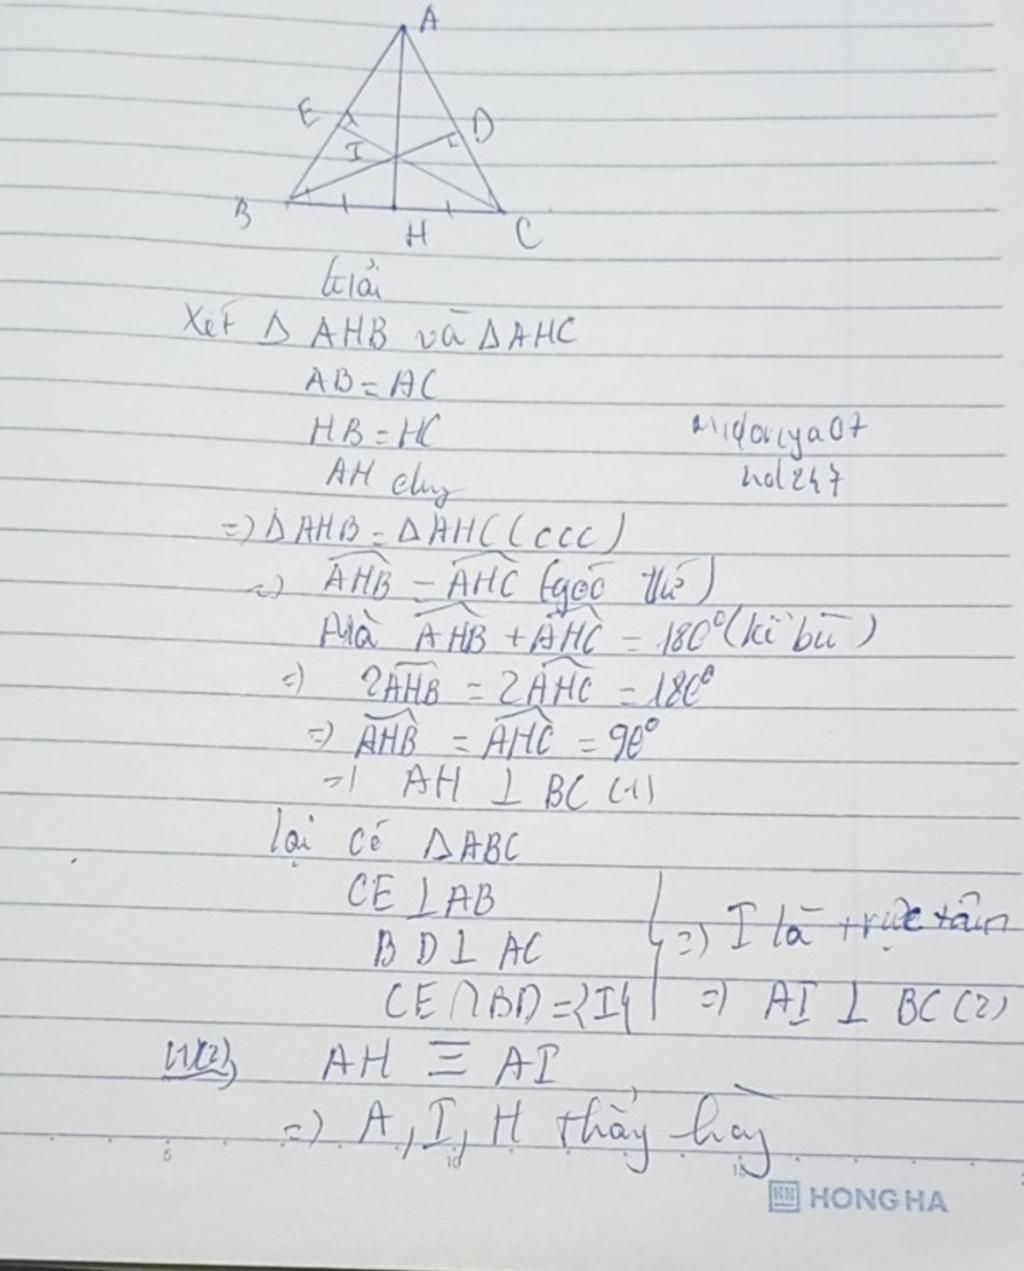 A
E
D
I
B
H
C
Giải
Xét Δ AHB và ΔAHC
AB = AC
HB = HC
AH chug
=) Δ AHB = Δ AHC (ccc)
=) AHB = AHC (góc tứ)
Mà AHB + AHC = 180° (kề bù)
=) 2AHB = 2AHC = 180°
=) AHB = AHC = 90°
=) AH ⊥ BC (1)
lại có ΔABC
CE ⊥ AB
BD ⊥ AC
=) I là trực tâm
CE ∩ BD = {I}
=) AI ⊥ BC (2)
(1)(2) AH ≡ AI
=) A, I, H thẳng hàng
hd247
5
10
15
HONG HA